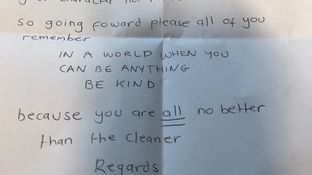 so going foward please all of you
remember
IN A WORLD WHEN YOU
CAN BE ANYTHING
BE KIND
because you are all no better
than the cleaner
Regards